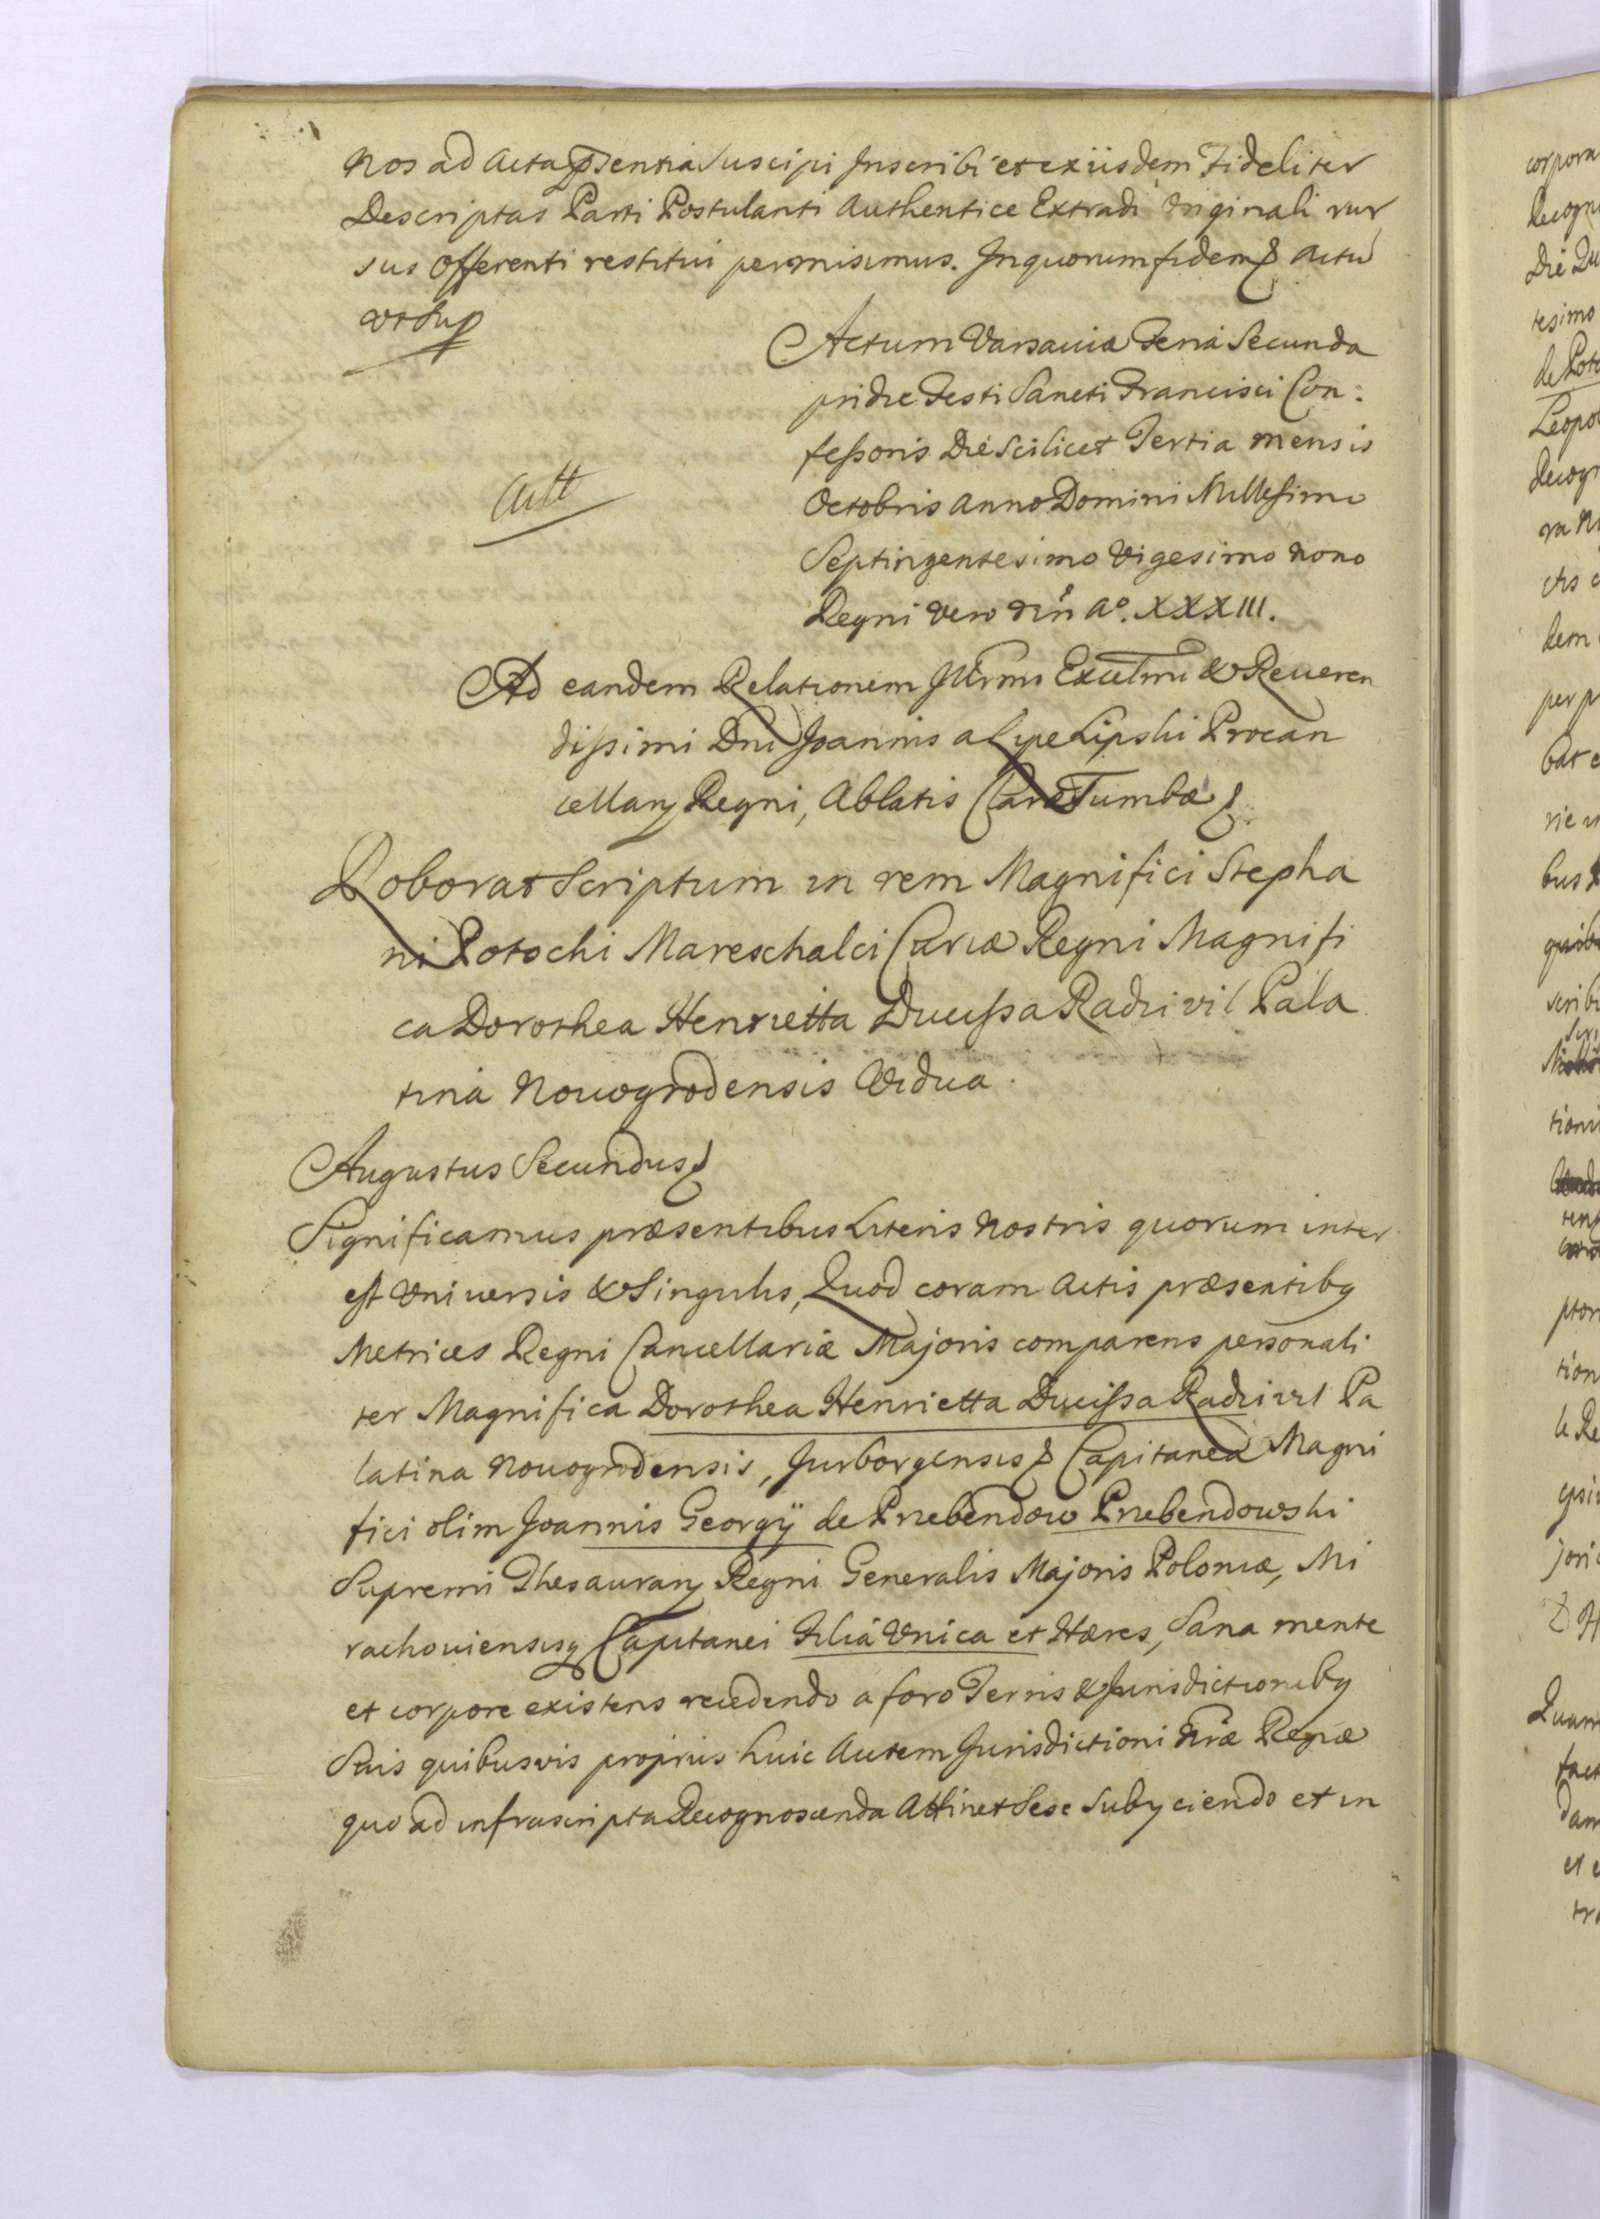 Nos ad Acta pñsentia Suscipi Inscribi et ex iisdem Fideliter
Descriptas Parti Postulanti Authentice Extradi Originali rur
sus Offerenti restitui permisimus. In quorum fidem & Actu
vt Sup
Actum Varsaviæ Feria Secunda
pridie Festi Sancti Francisci Con:
feßoris Die Scilicet Tertia mensis
Octobris Anno Domini Millesimo
Septingentesimo Vigesimo Nono
Regni vero Nri Aº. XXXIII.
Ad eandem Relationem Illrmi Excellmi & Reveren
dißimi Dni Joannis a Lipe Lipski Procan
cellarij Regni, Ablatis Claræ Tumbæ &
Roborat Scriptum in rem Magnifici Stepha
ni Potocki Mareschalci Curiæ Regni Magnifi
ca Dorothea Henrietta Ducißa Radzivil Pala
tina Novogrodensis Vidua.
Augustus Secundus &
Significamus præsentibus Literis Nostris quorum inter
est Universis & Singulis, Quod coram Actis præsentibꝯ
Metrices Regni Cancellariæ Majoris comparens personali
ter Magnifica Dorothea Henrietta Ducißa Radzivil Pa
latina Novogrodensis, Jurborgensis & Capitanea Magni
fici olim Joannis Georgÿ de Przebendow Przebendowski
Supremi Thesaurarij Regni Generalis Majoris Poloniæ, Mi
rachoviensisqꝫ Capitanei Filia Vnica et Hæres, Sana mente
et corpore existens recedendo a foro Terris & Jurisdictionibꝯ
Suis quibusvis proprijs huic Autem Jurisdictioni Nræ Regiæ
quo ad infrascripta Recognoscenda Attinet Sese Subijciendo et in